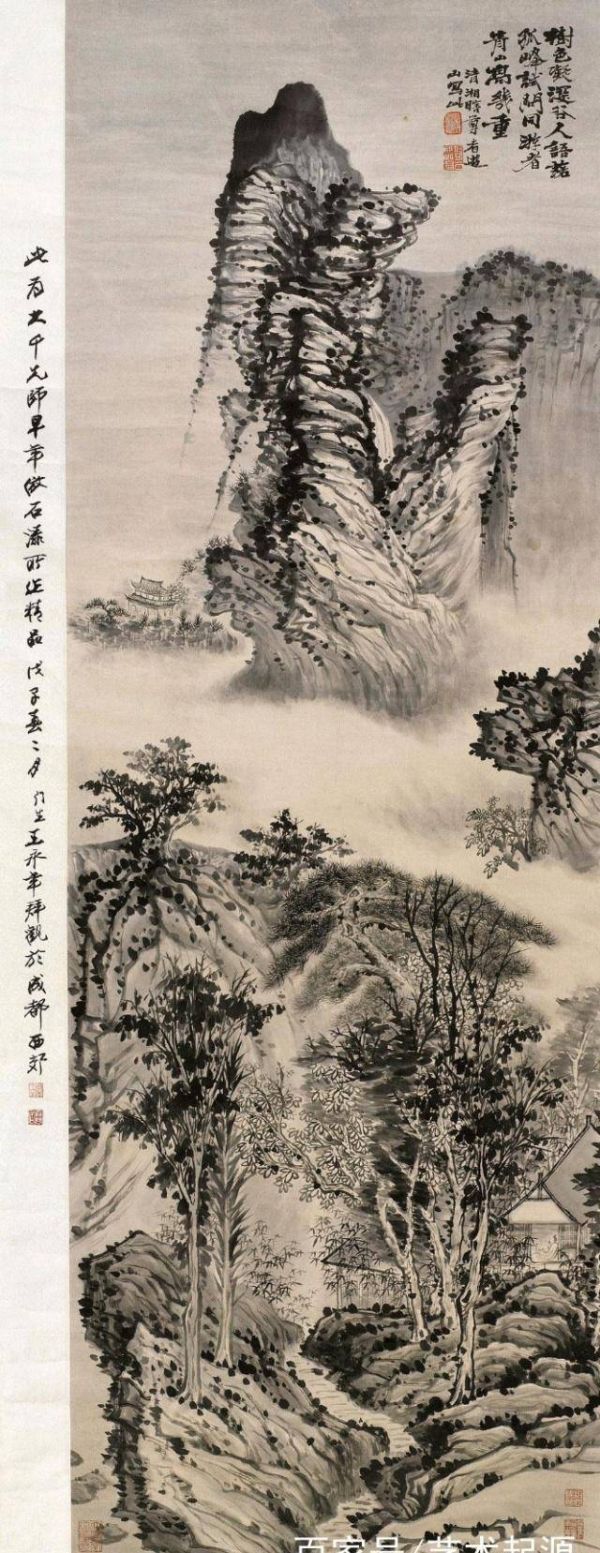 樹色凝谷人語落
孤峰試問同遊者
青山寫幾重
清湘瞎尊者遊
山寫此
此为大千先師早年倣石濤所作精品戊子春二月門生王永年拜觀於成都西郊
百家号/艺术起源